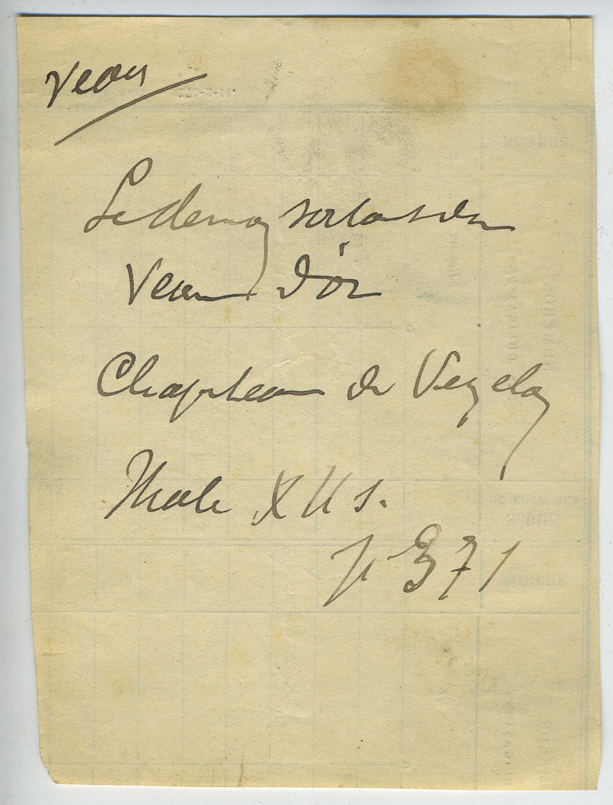 Veau
Le demon sortant du
Veau d'or
Chapiteau de Vezelay
Male XII s.
p 371